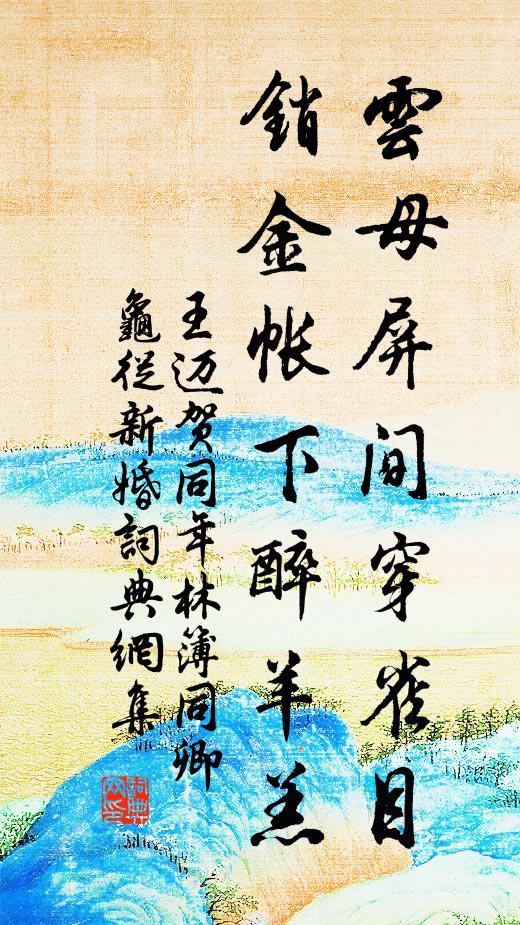 雲母屏间穿雀目
銷金帐下醉羊羔
王迈贺同年林簿同卿
龜從新婚詞典網集